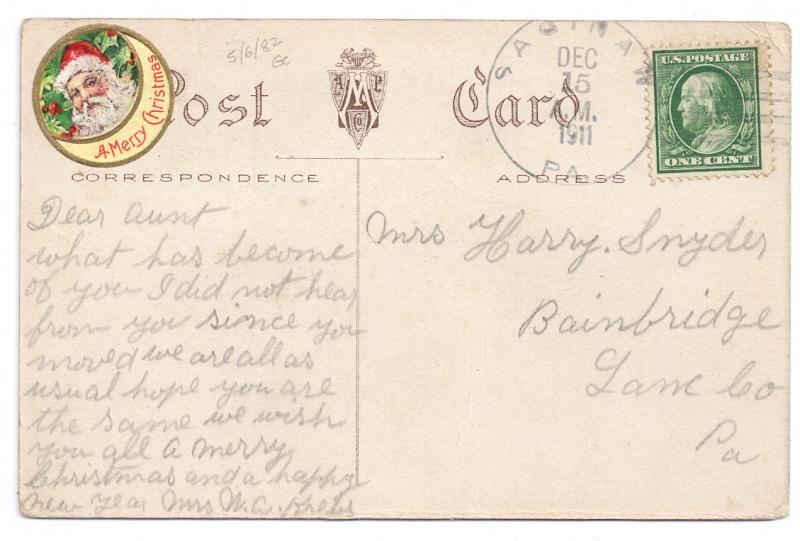 A Merry Christmas
5/6/82
GC
Post Card
A M P Co
SAGINAW
DEC
15
A.M.
1911
PA.
U.S. POSTAGE
ONE CENT
CORRESPONDENCE
ADDRESS
Dear Aunt
what has become
of you I did not hear
from you sionce you
moved we are all as
usual hope you are
the same we wish
you all a merry
Christmas and a happy
new year Mrs W.A. Krebs
Mrs Harry. Snyder
Bainbridge
Lanc Co
Pa